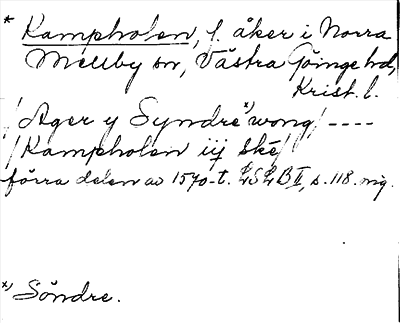 * Kampholen, f. åker i Norra
Mellby sn, Västra Göinge hd,
Krist. l.
/ Ager y Syndre *) wong / ----
/ Kampholen iij skē /
förra delen av 1570-t. LSLB II, s. 118. mg.
*) Söndre.